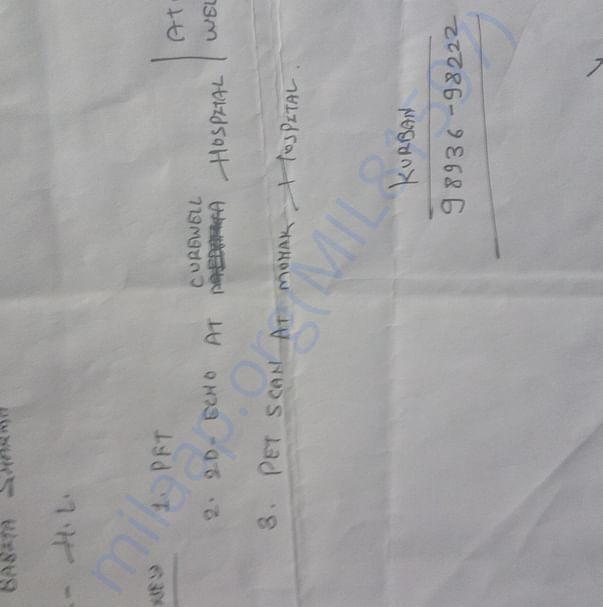 BABITA SHARMA
- H.L.
NEW
1. PFT
2. 2D-ECHO AT CUREWELL HOSPITAL
3. PET SCAN AT MOHAK HOSPITAL.
KURBAN
98936-98222
milaap.org(MIL87597)